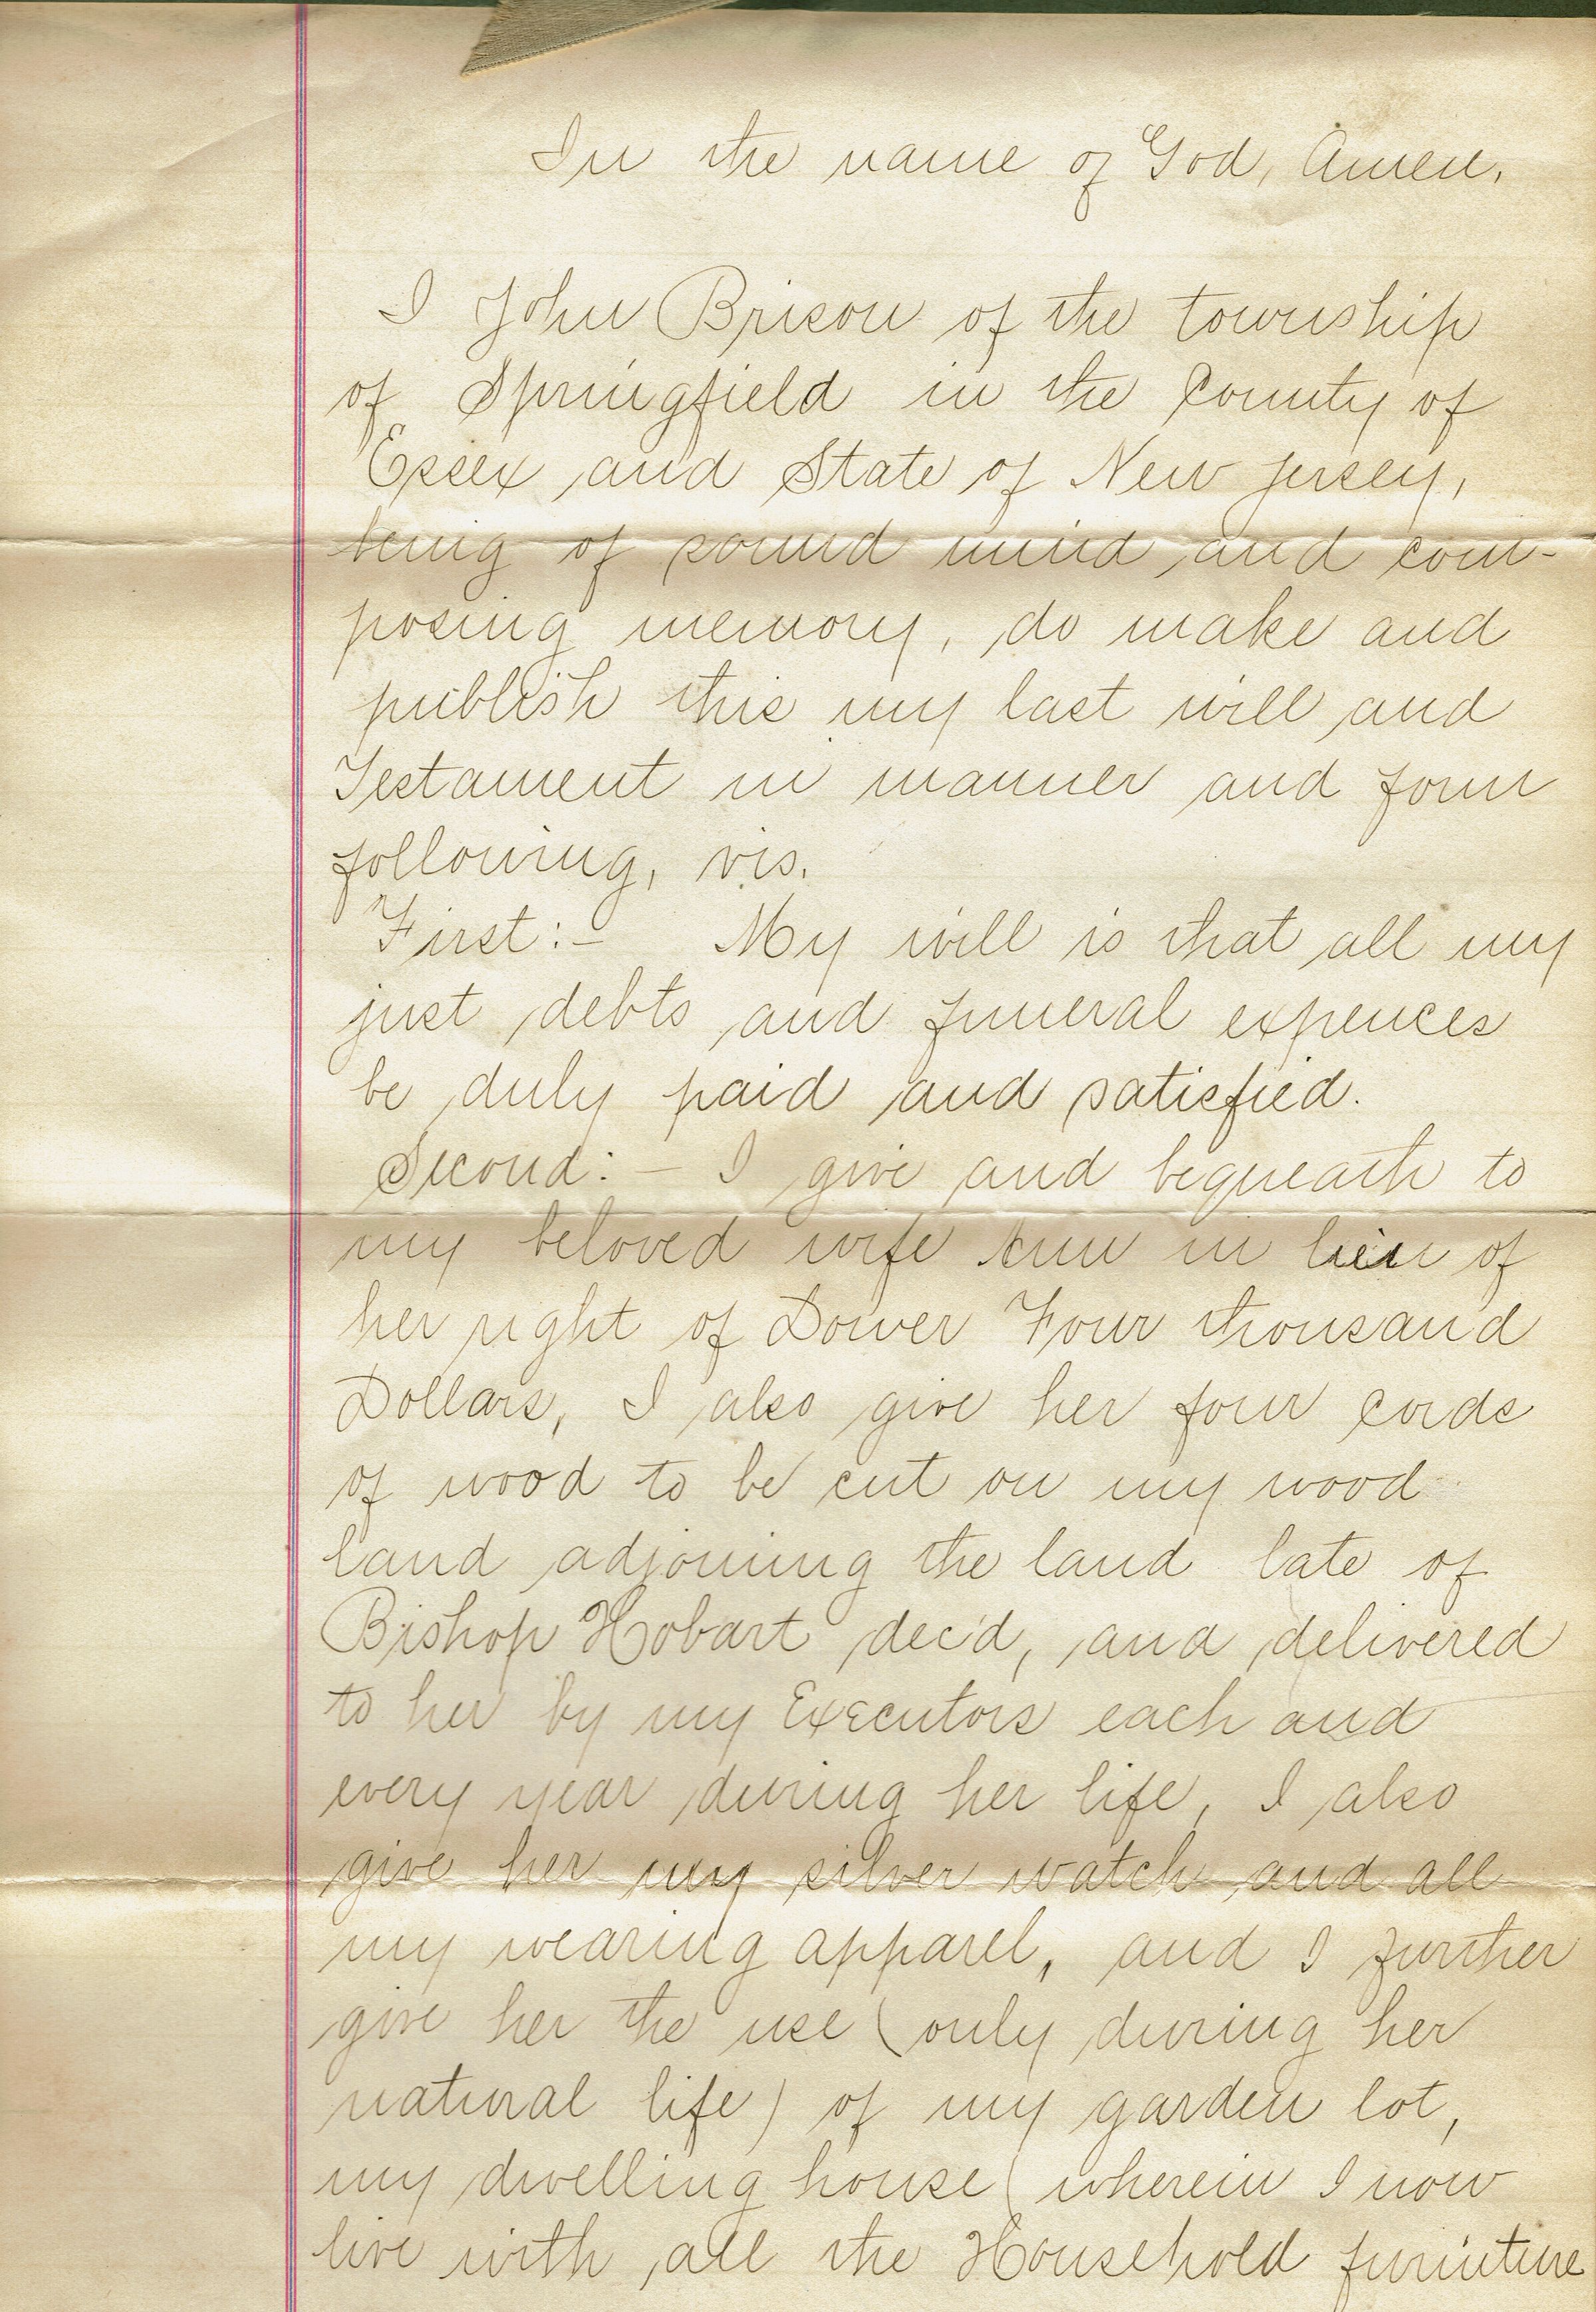 In the name of God, Amen.
I John Brison of the township
of Springfield in the County of
Essex and State of New Jersey,
being of sound mind and com-
posing memory, do make and
publish this my last will and
Testament in manner and form
following, vis.
First:- My will is that all my
just debts and funeral expences
be duly paid and satisfied.
Second:- I give and bequeath to
my beloved wife Ann in lieu of
her right of Dower Four thousand
Dollars, I also give her four cords
of wood to be cut on my wood
land adjoining the land late of
Bishop Hobart dec'd, and delivered
to her by my Executors each and
every year during her life, I also
give her my silver watch and all
my wearing apparel, and I further
give her the use (only during her
natural life) of my garden lot,
my dwelling house (wherein I now
live with all the Household furniture